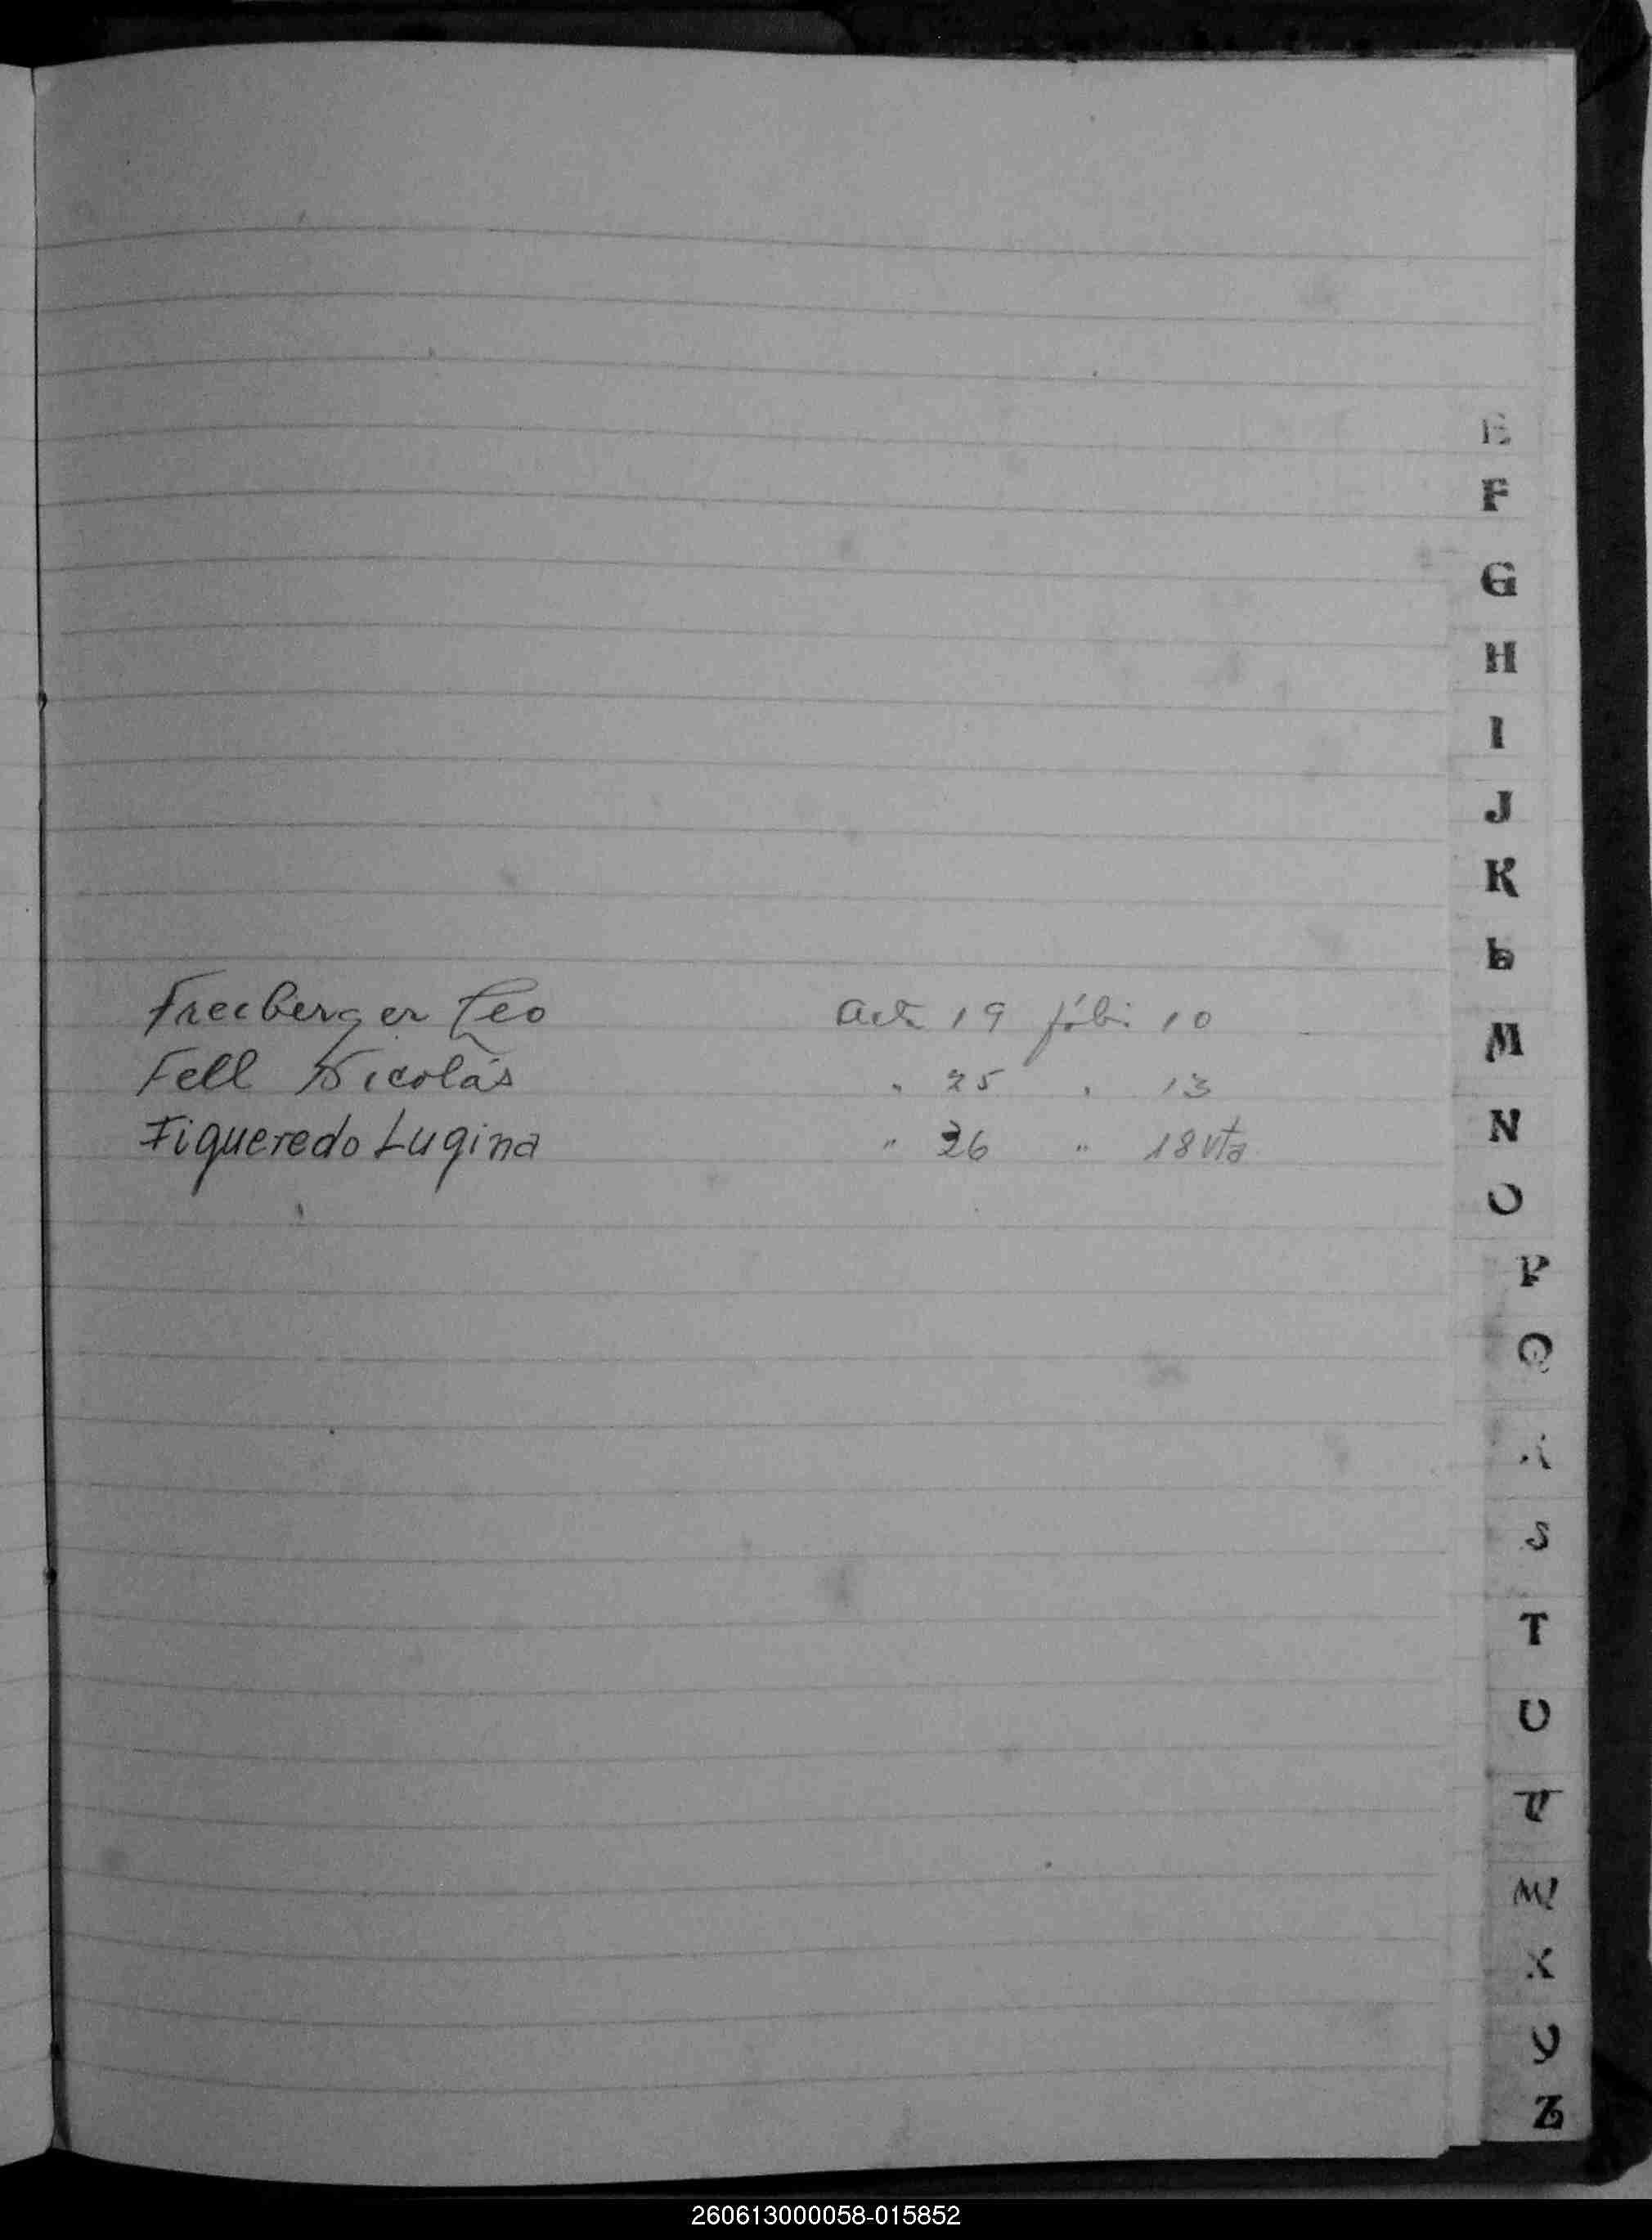 Freiberger Leo Acta 19 fólio 10
Fell Nicolás " 25 " 13
Figueredo Lugina " 36 " 18 vta
E
F
G
H
I
J
K
L
M
N
O
P
Q
S
T
U
V
W
X
Y
Z
260613000058-015852